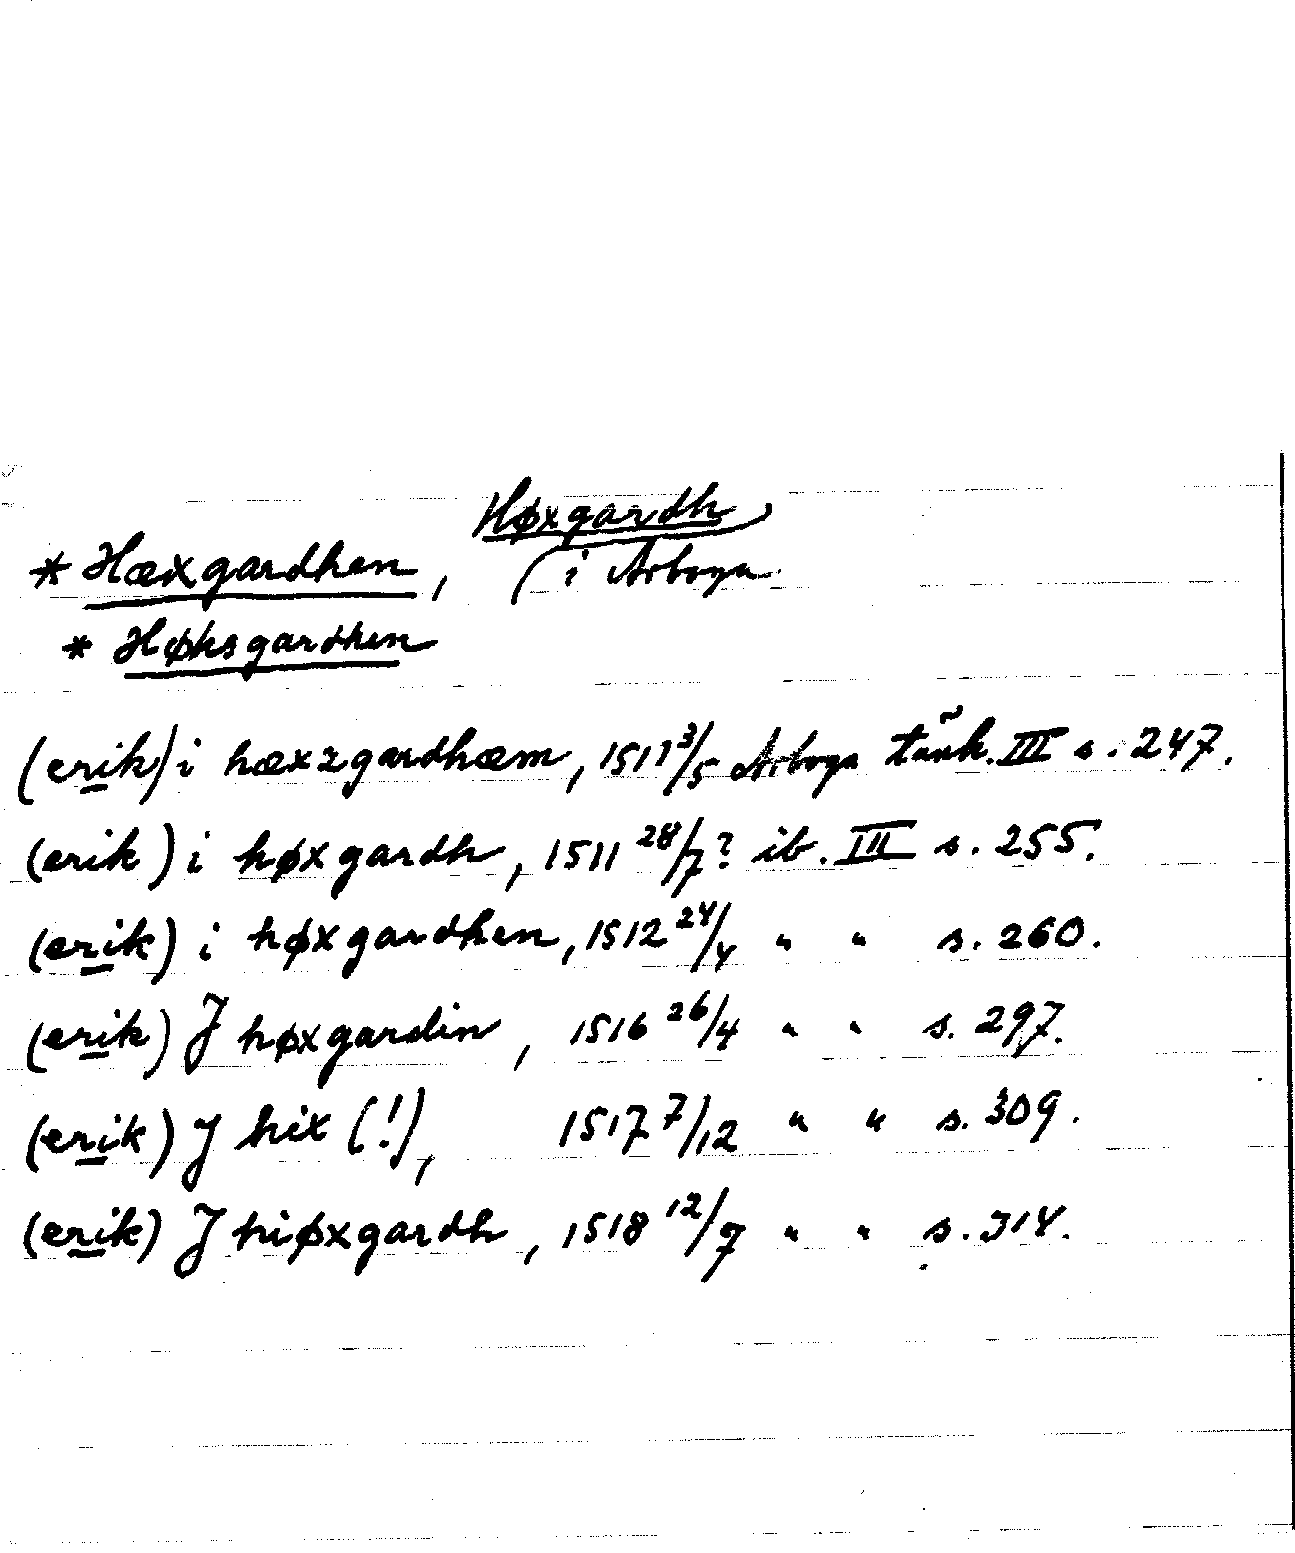 Høxgardh
* Hæxgardhen, (i Arboga
* Høksgardhen
(erik) i hæxzgardhæm, 1511 3/5 Arboga tänk. III s. 247.
(erik) i høxgardh, 1511 28/7? ib. III s. 255.
(erik) i høxgardhen, 1512 24/4 " " s. 260.
(erik) J høxgardin, 1516 26/4 " " s. 297.
(erik) J hix (!), 1517 7/12 " " s. 309.
(erik) J hiøxgardh, 1518 12/7 " " s. 314.